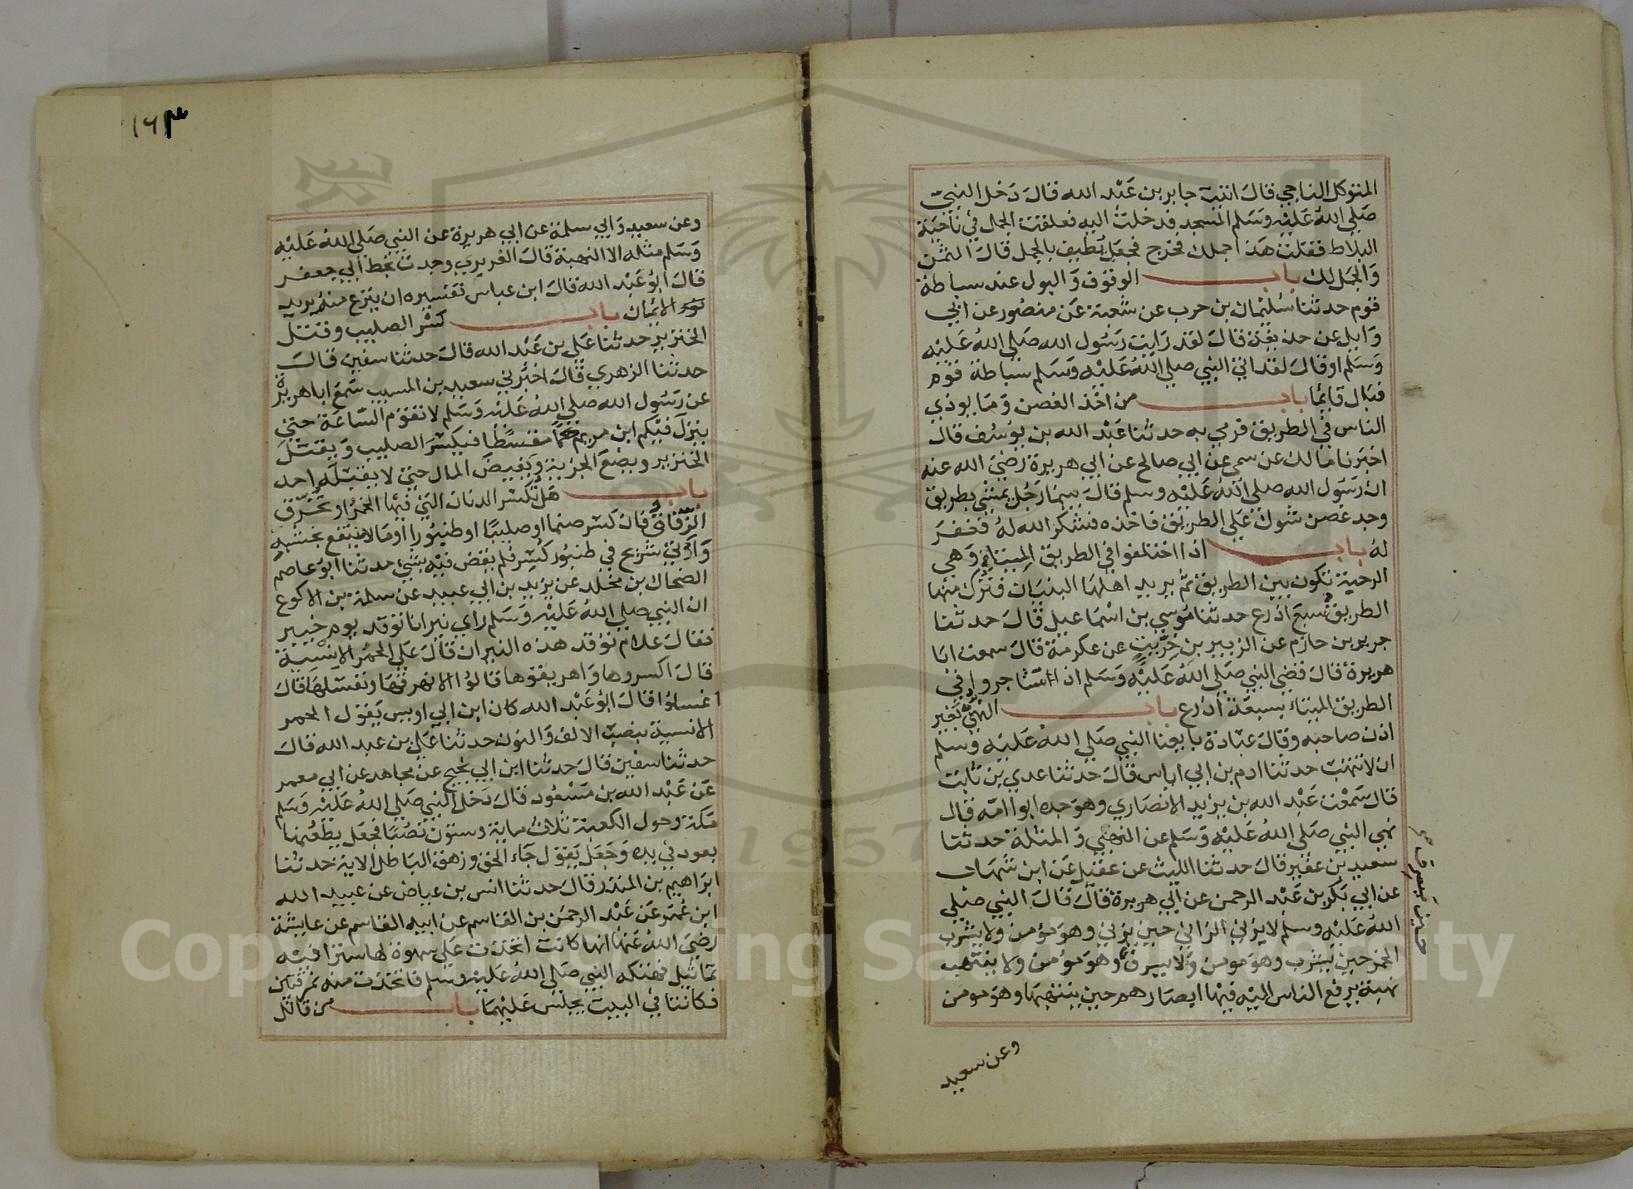 المتوكل الناجي قال اتيت جابر بن عبد الله قال دخل النبي
صلى الله عليه وسلم المسجد فدخلت اليه فعلقت الجمل في ناحية
البلاط فقلت هذا جملك فخرج فجعل يطيف بالجمل قال الثمن
والجمل لك باب الوقوف والبول عند سباطة
قوم حدثنا سليمان بن حرب عن شعبة عن منصور عن ابي
وايل عن حذيفة قال لقد رايت رسول الله صلي الله عليه
وسلم او قال لقد اتي النبي صلي الله عليه وسلم سباطة قوم
فبال قايما باب من اخذ الغصن وما يوذي
الناس في الطريق فرمي به حدثنا عبد الله بن يوسف قال
اخبرنا مالك عن سمي عن ابي صالح عن ابي هريرة رضي الله عنه
ان رسول الله صلي الله عليه وسلم قال بينما رجل يمشي بطريق
وجد غصن شوك علي الطريق فاخذه فشكر الله له فغفر
له باب اذا اختلفوا في الطريق الميتاء وهي
الرحبة تكون بين الطريق ثم يريد اهلها البنيان فترك منها
الطريق سبع اذرع حدثنا موسي بن اسماعيل قال حدثنا
جرير بن حازم عن الزبير بن خريت عن عكرمة قال سمعت ابا
هريرة قال قضي النبي صلي الله عليه وسلم اذا تشاجروا في
الطريق الميتاء بسبعة اذرع باب النهبي بغير
اذن صاحبه وقال عبادة بايعنا النبي صلي الله عليه وسلم
ان لا ننتهب حدثنا ادم بن ابي اياس قال حدثنا عدي بن ثابت
قال سمعت عبد الله بن يزيد الانصاري وهو جده ابو امه قال
نهي النبي صلي الله عليه وسلم عن النهبي والمثلة حدثنا
سعيد بن عفير قال حدثنا الليث عن عقيل عن ابن شهاب
عن ابي بكر بن عبد الرحمن عن ابي هريرة قال قال النبي صلي
الله عليه وسلم لا يزني الزاني حين يزني وهو مومن ولا يشرب
الخمر حين يشرب وهو مومن ولا يسرق وهو مومن ولا ينتهب
نهبة يرفع الناس اليه فيها ابصارهم حين ينتهبها وهو مومن
حين يسرق
وعن سعيد
١٦٣
وعن سعيد وابي سلمة عن ابي هريرة عن النبي صلي الله عليه
وسلم مثله الا النهبة قال الفربري وجدت بخط ابي جعفر
قال ابو عبد الله قال ابن عباس تفسيره ان ينزع منه يريد
نور الايمان باب كسر الصليب وقتل
الخنزير حدثنا علي بن عبد الله قال حدثنا سفين قال
حدثنا الزهري قال اخبرني سعيد بن المسيب سمع ابا هريرة
عن رسول الله صلي الله عليه وسلم لا تقوم الساعة حتي
ينزل فيكم ابن مريم حكما مقسطا فيكسر الصليب ويقتل
الخنزير ويضع الجزية ويفيض المال حتي لا يقبله احد
باب هل تكسر الدنان التي فيها الخمر او تخرق
الزقاق فان كسر صنما او صليبا او طنبورا او ما لا ينتفع بخشبه
واتي شريح في طنبور كسر فلم يقض فيه بشي حدثنا ابو عاصم
الضحاك بن مخلد عن يزيد بن ابي عبيد عن سلمة بن الاكوع
ان النبي صلي الله عليه وسلم راي نيرانا توقد يوم خيبر
فقال علام توقد هذه النيران قال علي الحمر الانسية
قال اكسروها واهريقوها قالوا الا نهرقها ونغسلها قال
اغسلوا قال ابو عبد الله كان ابن ابي اويس يقول الحمر
الانسية بنصب الالف والنون حدثنا علي بن عبد الله قال
حدثنا سفين قال حدثنا ابن ابي نجيح عن مجاهد عن ابي معمر
عن عبد الله بن مسعود قال دخل النبي صلي الله عليه وسلم
مكة وحول الكعبة ثلاث ماية وستون نصبا فجعل يطعنها
بعود في يده وجعل يقول جاء الحق وزهق الباطل الاية حدثنا
ابراهيم بن المنذر قال حدثنا انس بن عياض عن عبيد الله
ابن عمر عن عبد الرحمن بن القاسم عن ابيه القاسم عن عايشة
رضي الله عنها انها كانت اتخذت علي سهوة لها سترا فيه
تماثيل فهتكه النبي صلي الله عليه وسلم فاتخذت منه نمرقتين
فكانتا في البيت يجلس عليهما باب من قاتل
1957